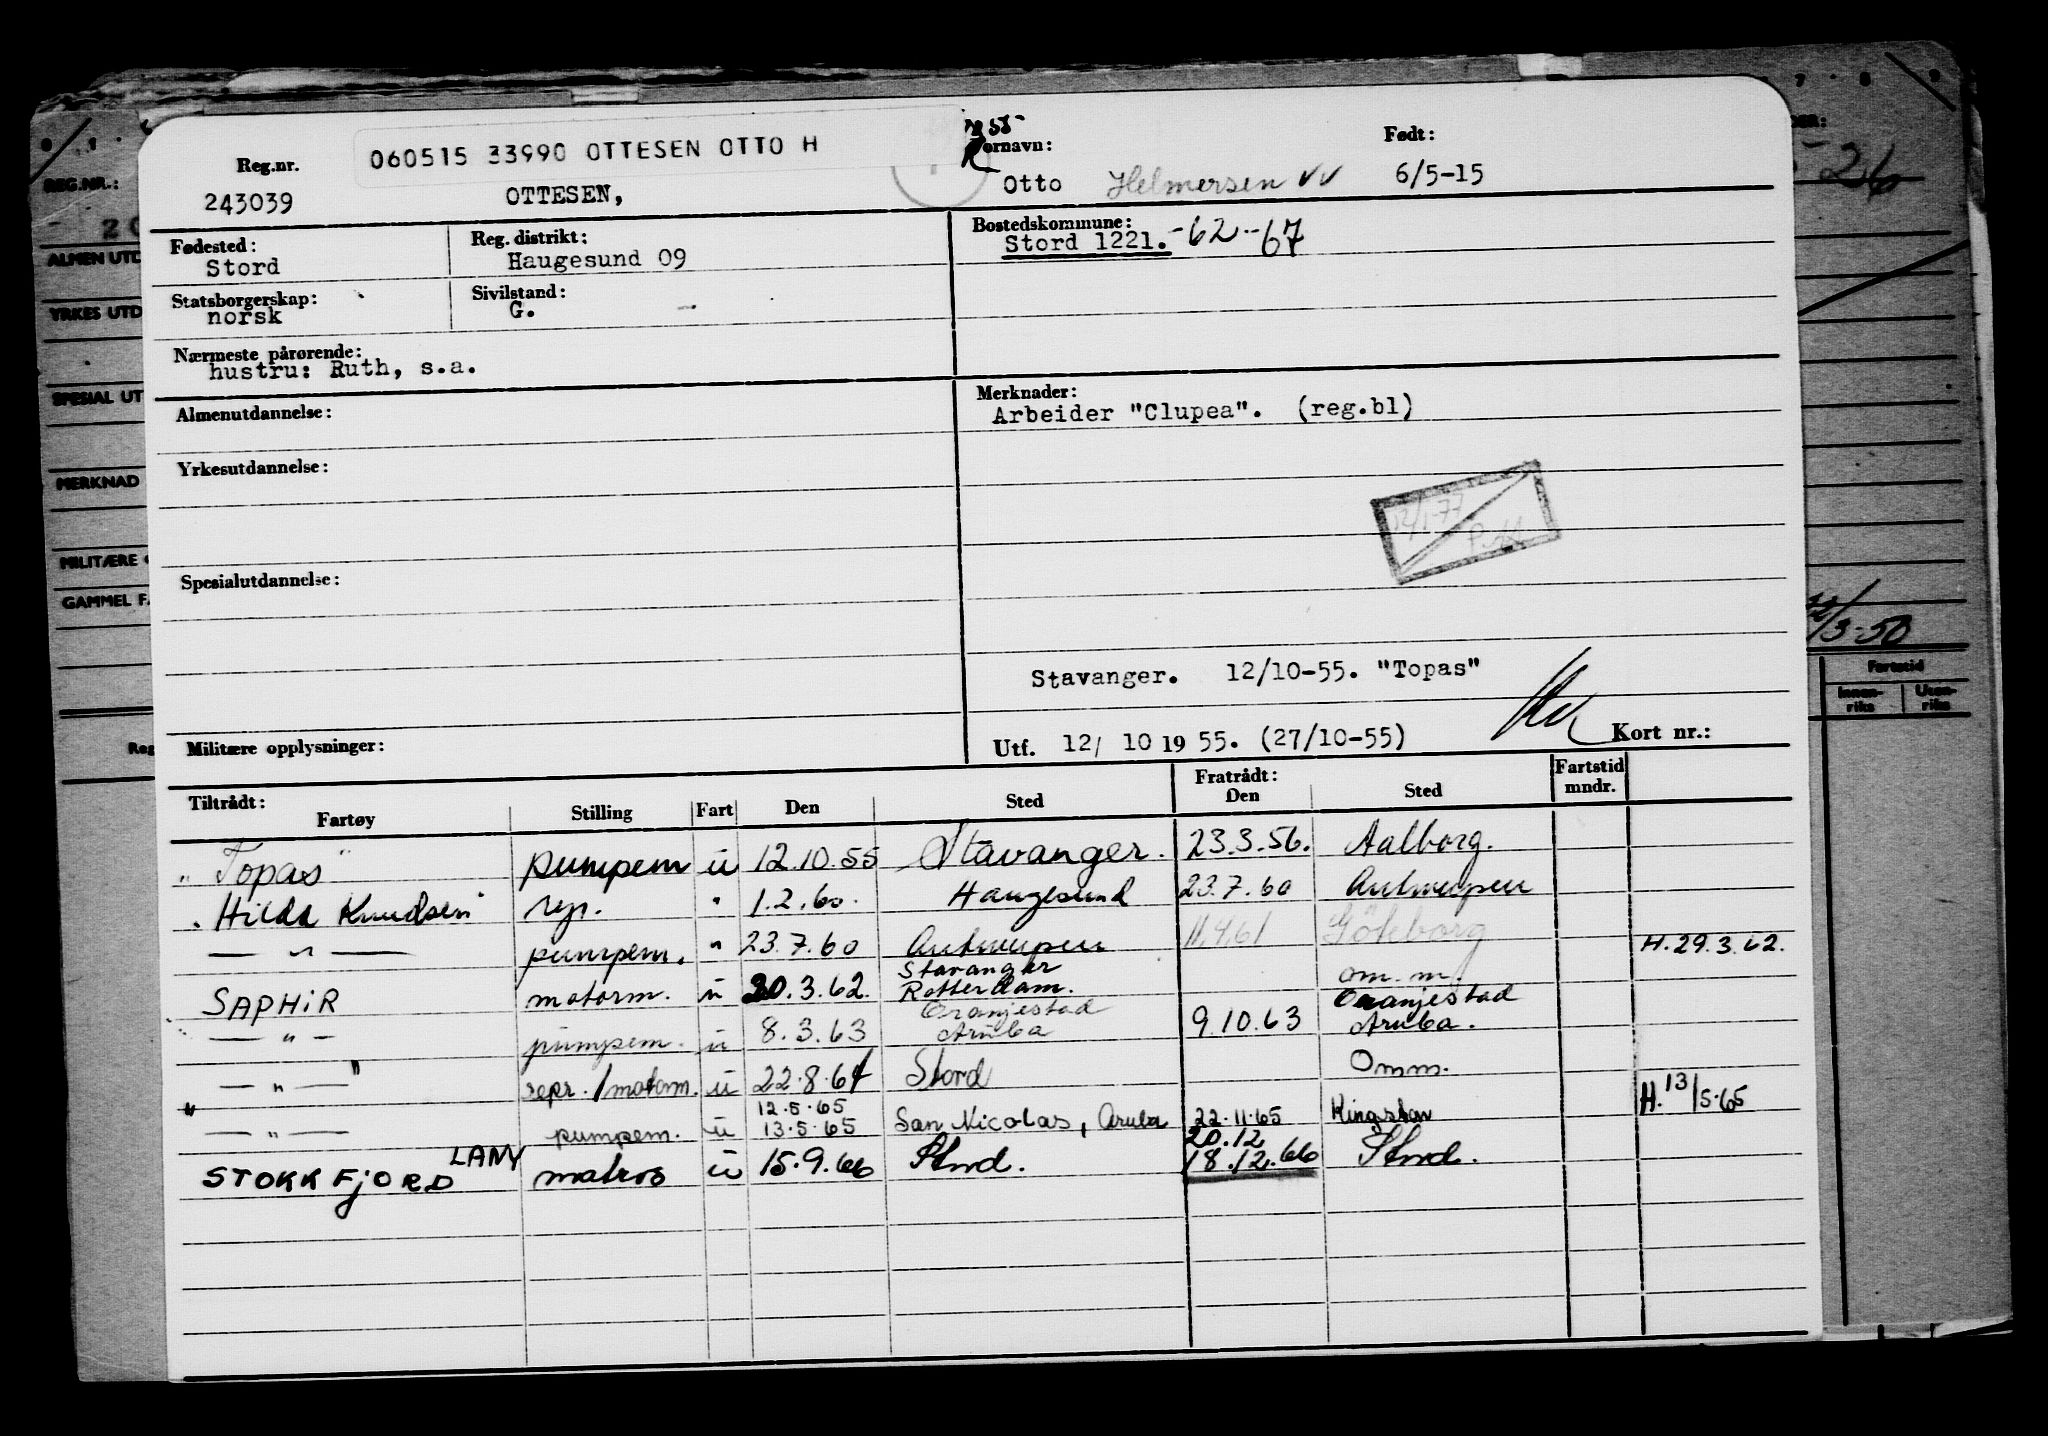 060515 33990 OTTESEN OTTO H
Reg.nr.
243039
OTTESEN,
Fornavn:
Otto Helmersen
Født:
6/5-15
Fødested:
Stord
Reg. distrikt:
Haugesund 09
Bostedskommune:
Stord 1221. -62 -67
Statsborgerskap:
norsk
Sivilstand:
G.
Nærmeste pårørende:
hustru: Ruth, s.a.
Almenutdannelse:
Yrkesutdannelse:
Spesialutdannelse:
Militære opplysninger:
Merknader:
Arbeider "Clupea". (reg.bl)
12/1-77
Stavanger. 12/10-55. "Topas"
Utf. 12/ 10 19 55. (27/10-55)
Kort nr.:
Tiltrådt: Fratrådt:
Fartøy Stilling Fart Den Sted Den Sted Fartstid mndr.
"Topas" pumpem ü 12.10.55 Stavanger. 23.3.56. Aalborg.
"Hilda Knudsen" rep. " 1.2.60. Haugesund 23.7.60 Antwerpen
— " — pumpem. " 23.7.60 Antwerpen 11.4.61 Göteborg H. 29.3.62.
SAPHIR motorm. ü 20.3.62. Stavanger Rotterdam. om.m.
— " — pumpem. ü 8.3.63 Oranjestad Aruba 9.10.63 Oranjestad Aruba.
— " — repr./motorm. ü 22.8.64 Stord Omm.
— " — pumpem. ü 12.5.65 13.5.65 San Nicolas, Aruba 22.11.65 Kingston H. 13/5.65
STOKKFJORD LANY matros ü 15.9.66 Stord. 20.12 18.12.66 Stord.
REG.NR.:
ALMEN UTD
YRKES UTD
SPESIAL UT
MERKNAD
MILITÆRE
GAMMEL F
Reg
26
/3-50
Fartstid
Innen-riks Uten-riks